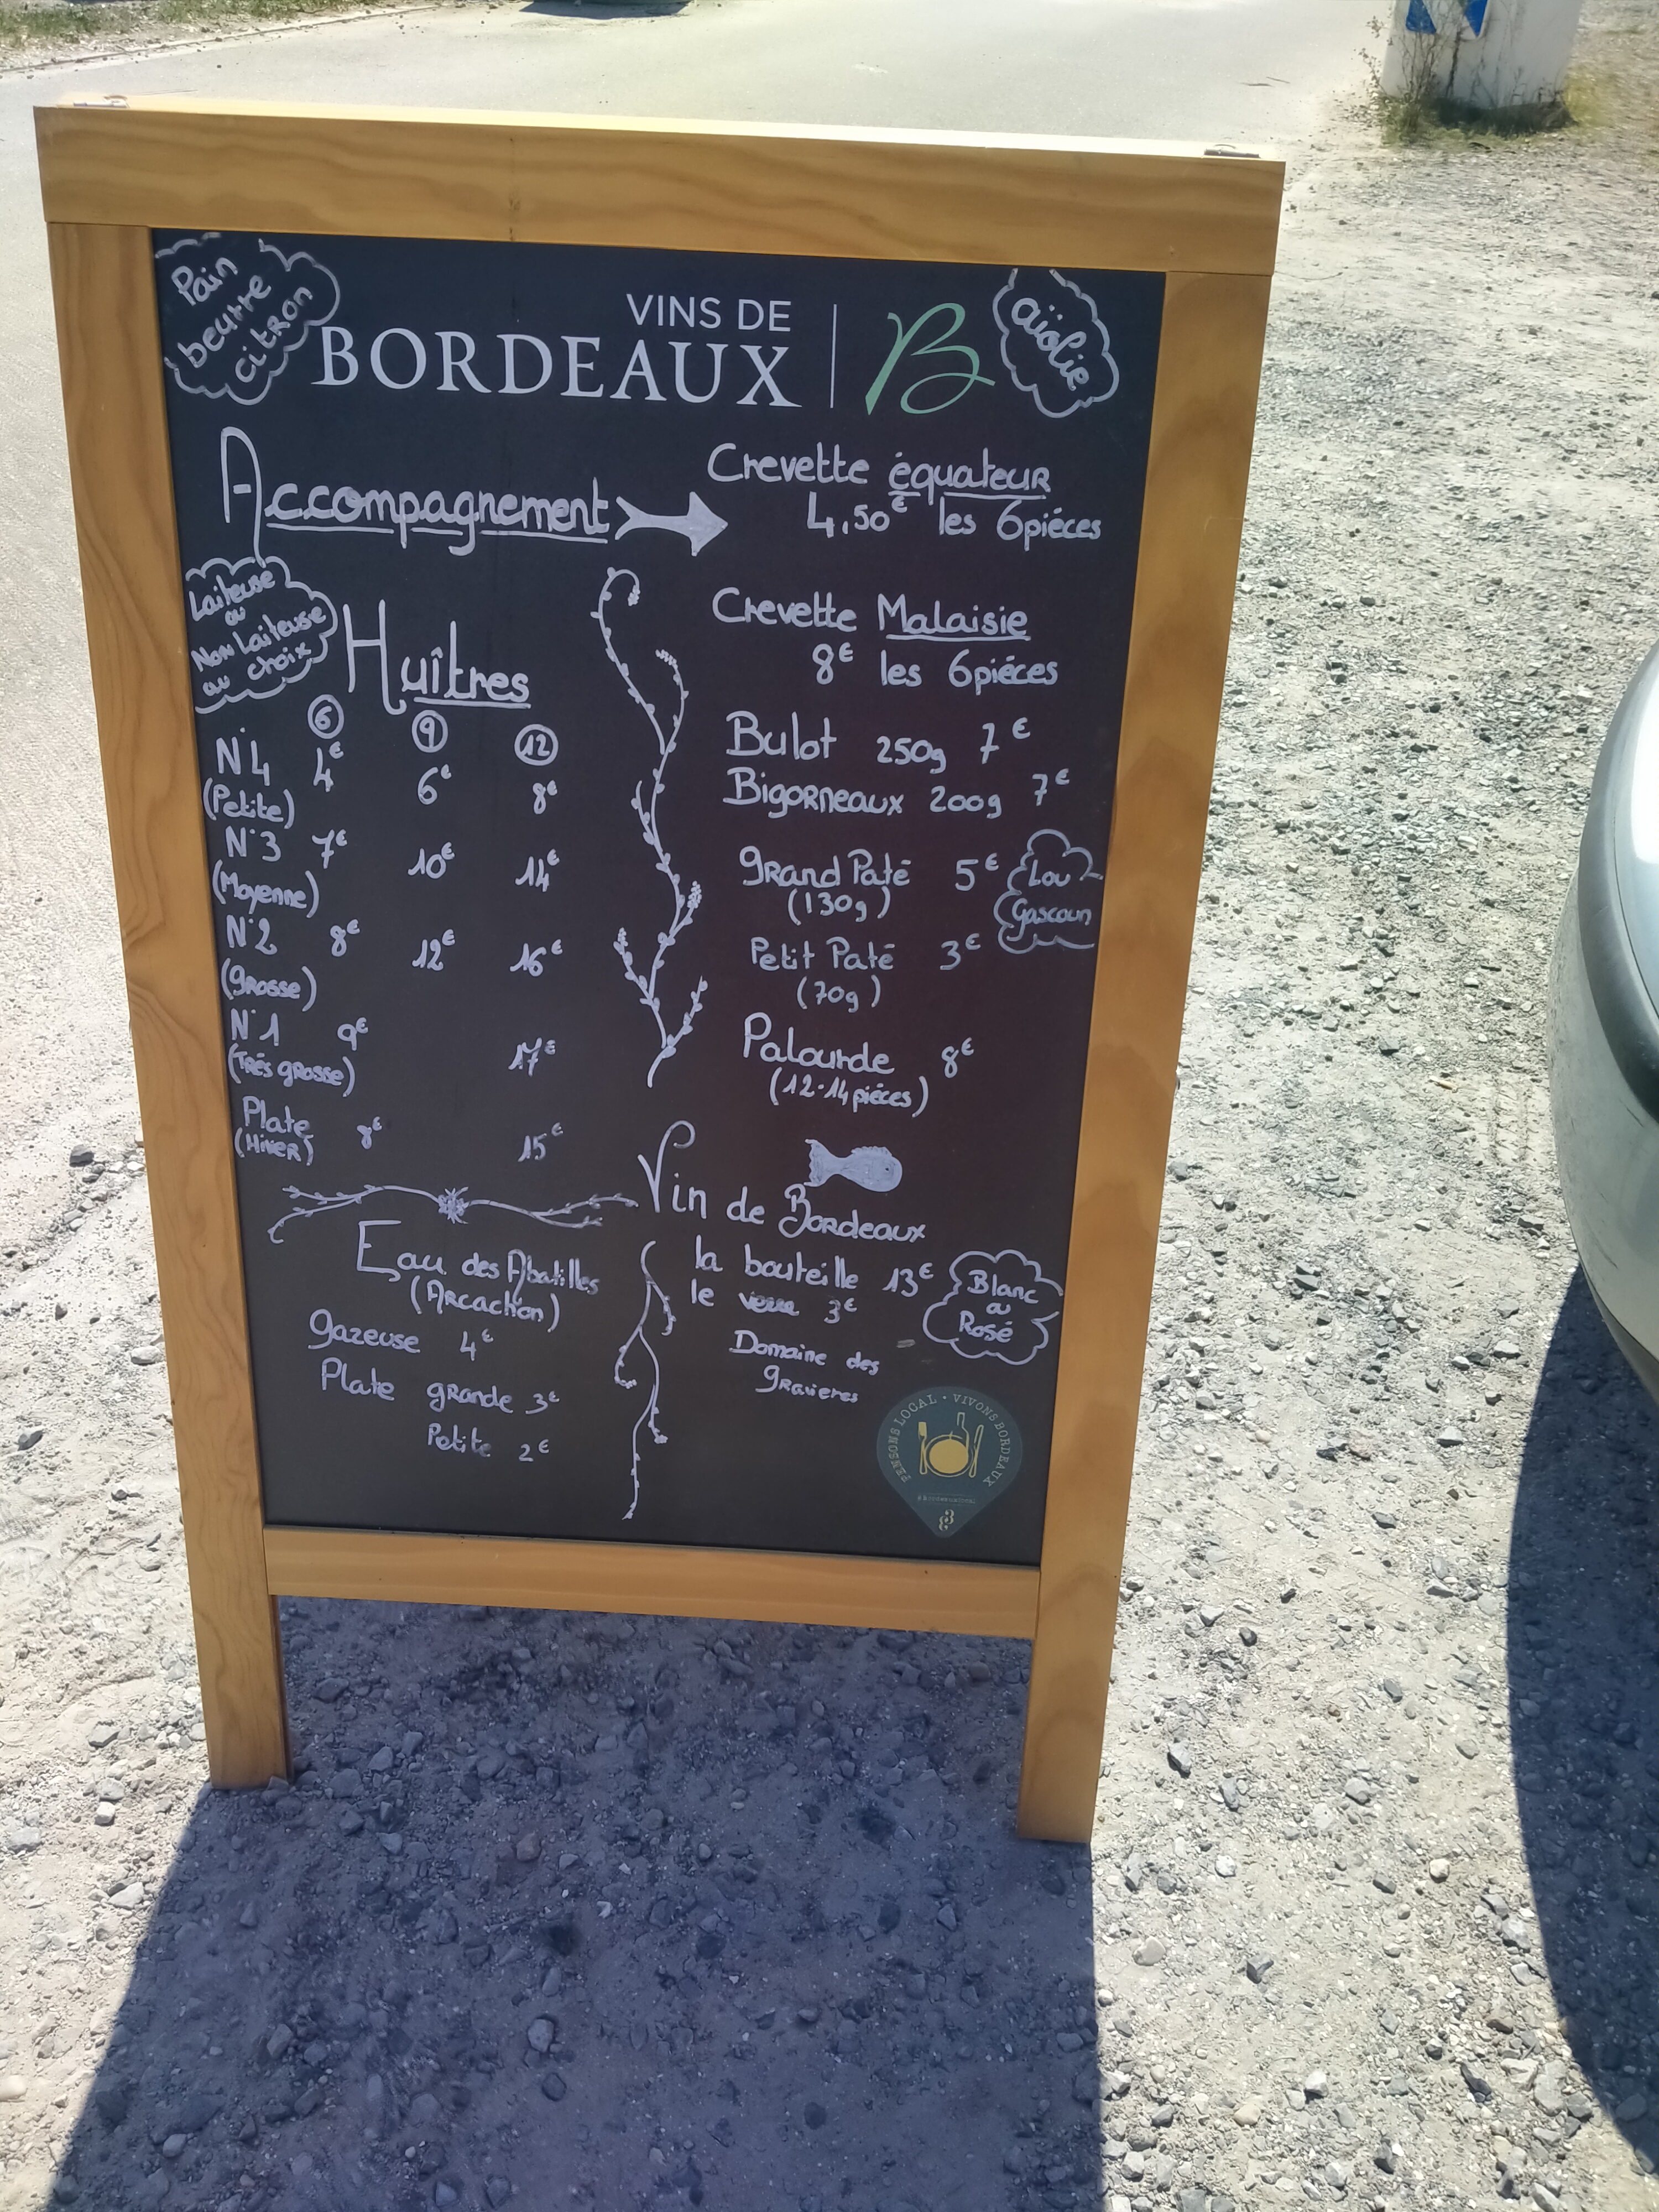 Pain
beurre
citron
VINS DE
BORDEAUX
B
aïolie
Accompagnement
Crevette équateur
4,50€ les 6 piéces
Crevette Malaisie
8€ les 6 piéces
Bulot 250g 7€
Bigorneaux 200g 7€
grand Paté 5€
(130g)
Lou
Gascoun
Petit Paté 3€
(70g)
Palourde 8€
(12-14 piéces)
Laiteuse
ou
Non Laiteuse
au choix
Huîtres
6 9 12
N°4 4€ 6€ 8€
(Petite)
N°3 7€ 10€ 14€
(Moyenne)
N°2 8€ 12€ 16€
(grosse)
N°1 9€ 17€
(Trés grosse)
Plate 8€ 15€
(Hiver)
Eau des Abatilles
(Arcachon)
Gazeuse 4€
Plate grande 3€
Petite 2€
Vin de Bordeaux
la bouteille 13€
le verre 3€
Blanc
ou
Rosé
Domaine des
gravieres
PENSONS LOCAL • VIVONS BORDEAUX